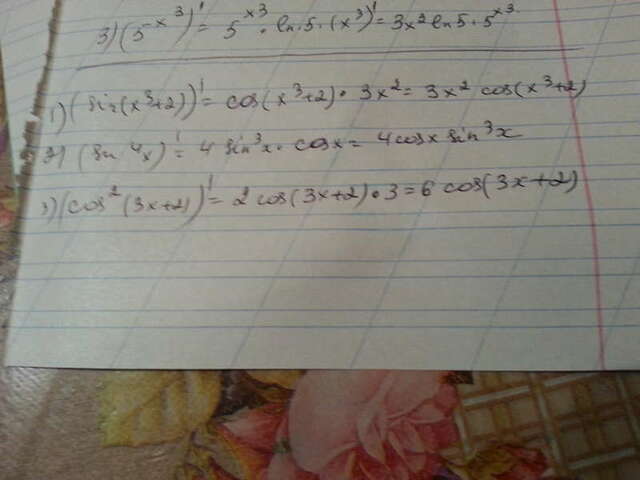 3) (5^-x^3)' = 5^x^3 · ln · 5 · (x^3)' = 3x^2 ln 5 · 5^x^3
1) (sin(x^3+2))' = cos(x^3+2) · 3x^2 = 3x^2 cos(x^3+2)
2) (sin^4 x)' = 4 sin^3 x · cosx = 4cosx sin^3 x
3) (cos^2 (3x+2))' = 2 cos(3x+2) · 3 = 6 cos(3x+2)